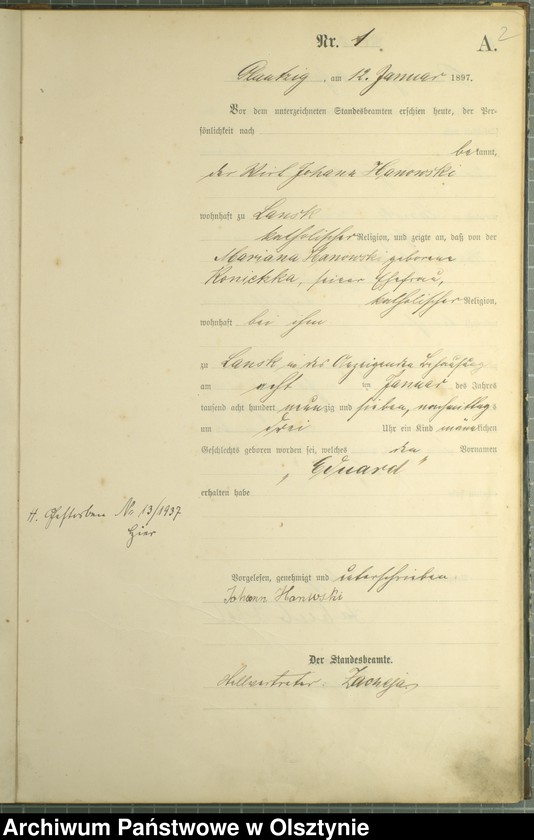 2
Nr. 1 A.
am 12. Januar 1897.
Vor dem unterzeichneten Standesbeamten erschien heute, der Per-
sönlichkeit nach
bekannt,
der Wirt Johann Hanowski
wohnhaft zu Lansk
katholischer Religion, und zeigte an, daß von der
Mariana Hanowski geborene
Konietzka, seiner Ehefrau,
katholischer Religion,
wohnhaft bei ihm
zu Lansk in des Anzeigenden Behausung
am acht ten Januar des Jahres
tausend acht hundert neunzig und sieben, nachmittags
um drei Uhr ein Kind männlichen
Geschlechts geboren worden sei, welches den Vornamen
„Eduard"
erhalten habe
H. Gestorben Nr. 13/1937
hier
Vorgelesen, genehmigt und unterschrieben.
Johann Hanowski
Der Standesbeamte.
Stellvertreter.
Archiwum Państwowe w Olsztynie